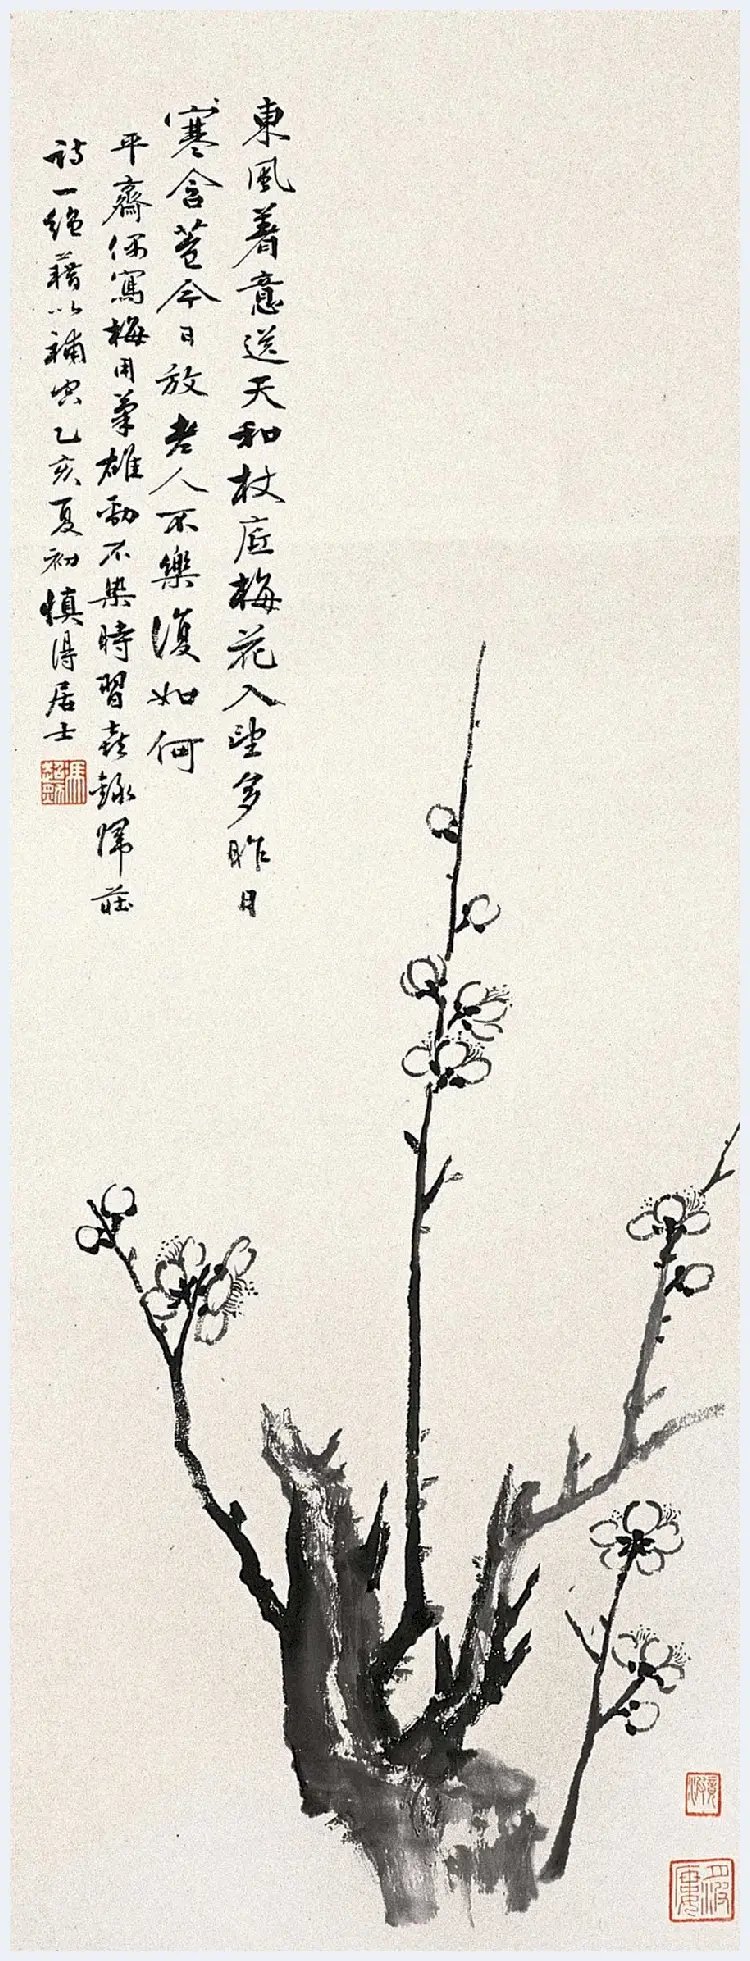 東風着意送天和杖底梅花入望多昨日
寒含苞今日放老人不樂復如何
平齋偶寫梅用筆雄勁不染時習喜錄歸莊
詩一絕藉以補空乙亥夏初慎得居士